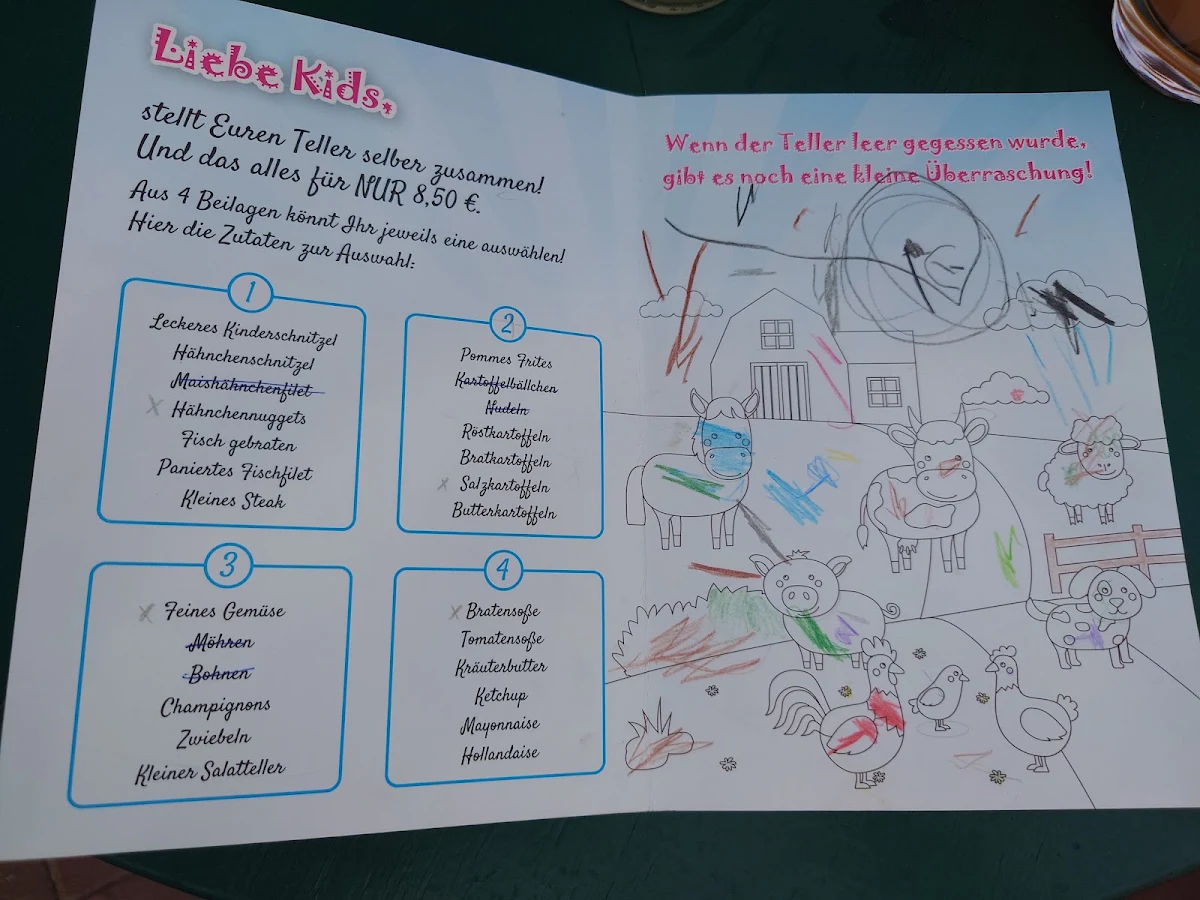 Liebe Kids,
stellt Euren Teller selber zusammen!
Und das alles für NUR 8,50 €.
Aus 4 Beilagen könnt Ihr jeweils eine auswählen!
Hier die Zutaten zur Auswahl:
1
Leckeres Kinderschnitzel
Hähnchenschnitzel
Maishähnchenfilet
x Hähnchennuggets
Fisch gebraten
Paniertes Fischfilet
Kleines Steak
2
Pommes Frites
Kartoffelbällchen
Nudeln
Röstkartoffeln
Bratkartoffeln
x Salzkartoffeln
Butterkartoffeln
3
x Feines Gemüse
Möhren
Bohnen
Champignons
Zwiebeln
Kleiner Salatteller
4
x Bratensoße
Tomatensoße
Kräuterbutter
Ketchup
Mayonnaise
Hollandaise
Wenn der Teller leer gegessen wurde,
gibt es noch eine kleine Überraschung!